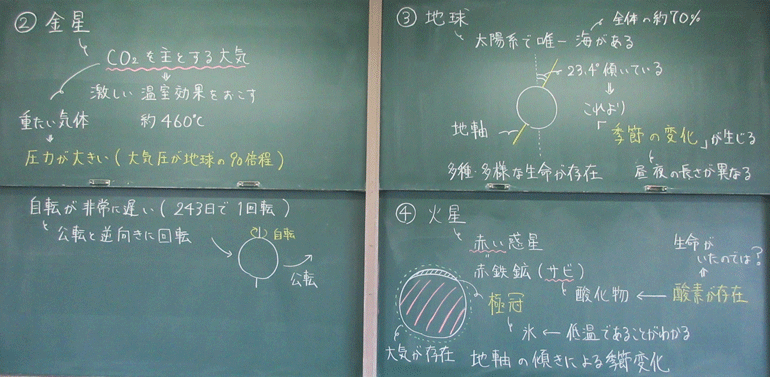 ② 金星
CO₂を主とする大気
激しい 温室効果をおこす
重たい気体
約460℃
圧力が大きい(大気圧が地球の90倍程)
自転が非常に遅い(243日で1回転)
公転と逆向きに回転
自転
公転
③ 地球
全体の約70%
太陽系で唯一 海がある
23.4°傾いている
これより
地軸
「季節の変化」が生じる
多種・多様な生命が存在
昼夜の長さが異なる
④ 火星
赤い惑星
生命が
いたのでは?
赤鉄鉱(サビ)
酸化物 ← 酸素が存在
極冠
氷 ← 低温であることがわかる
大気が存在
地軸の傾きによる季節変化